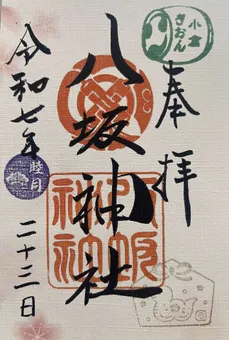 小倉
ぎおん
奉拝
八坂神社
令和七年
睦月
二十三日
八坂
神社